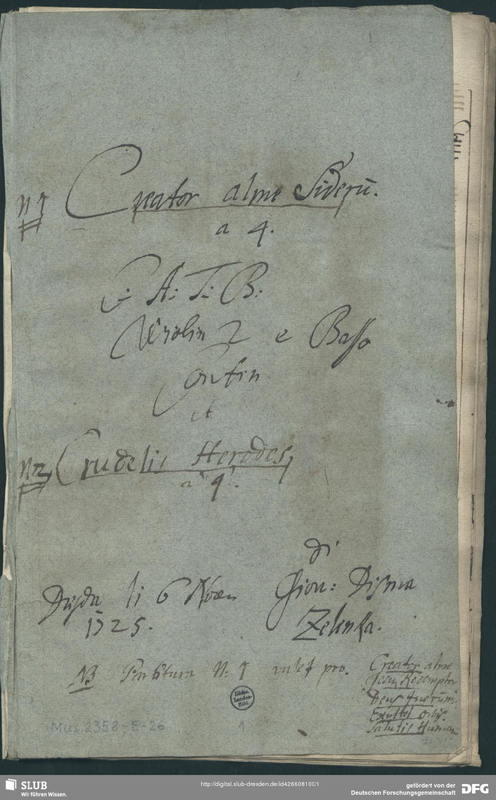 N 1 Creator alme Siderū.
a 4.
C: A: T: B:
Violin 2 e Basso
Contin
et
N 2 Crudelis Herodes,
a 4.
di
Dresda li 6 Giov: Disma
1725. Zelenka.
NB Partitura N: 1 valet pro. Creator alme
Jesu Redemptor
Exultet orbis.
Salutis Human
Mus. 2358-E-26
1
SLUB
Wir führen Wissen.
http://digital.slub-dresden.de/id426608100/1
gefördert von der
Deutschen Forschungsgemeinschaft
DFG